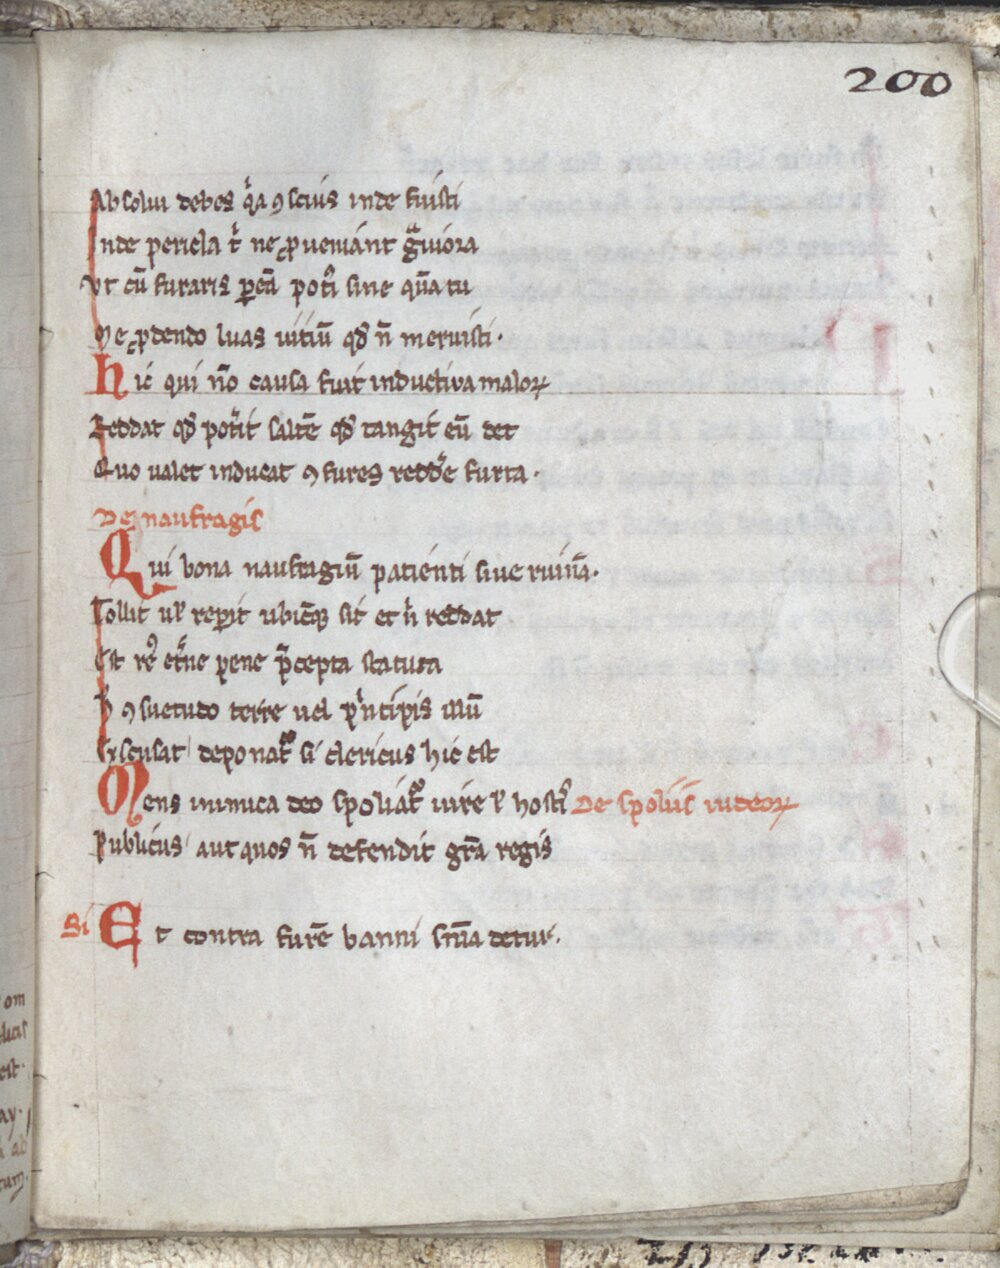 200
Absolui debes q͛a ꝯscius inde fuisti
Inde pericla t͛ ne ꝓueniant g͛uiora
Vt cū furaris ꝑcū pot͛i sine
Ne ꝓdendo luas uitiū qđ n̄ meruisti.
Hic qui n̄o causa fuit inductiua maloꝝ
Reddat qđ pot͛it saltē qđ tangit eū det
Quo ualet inducat ꝯ fures redd͛e furta.
De naufragis
Qui bona naufragiū patienti siue ruinā.
Tollit ul̛ reꝑit ubicūqꝫ sit et n̄ reddat
Est re͛ et͛ne pene p̄cepta statura
ꝯsuetudo terre uel p͛ncipis illū
Excusat deponat᷑ si clericus hic est
Mens inimica deo spoliat᷑ iure ł host͛ De spoliis iudeoꝝ
Publicus aut quos n̄ defendit gr̄a regis
Si Et contra furē banni sn̄ia detur.
om
est.